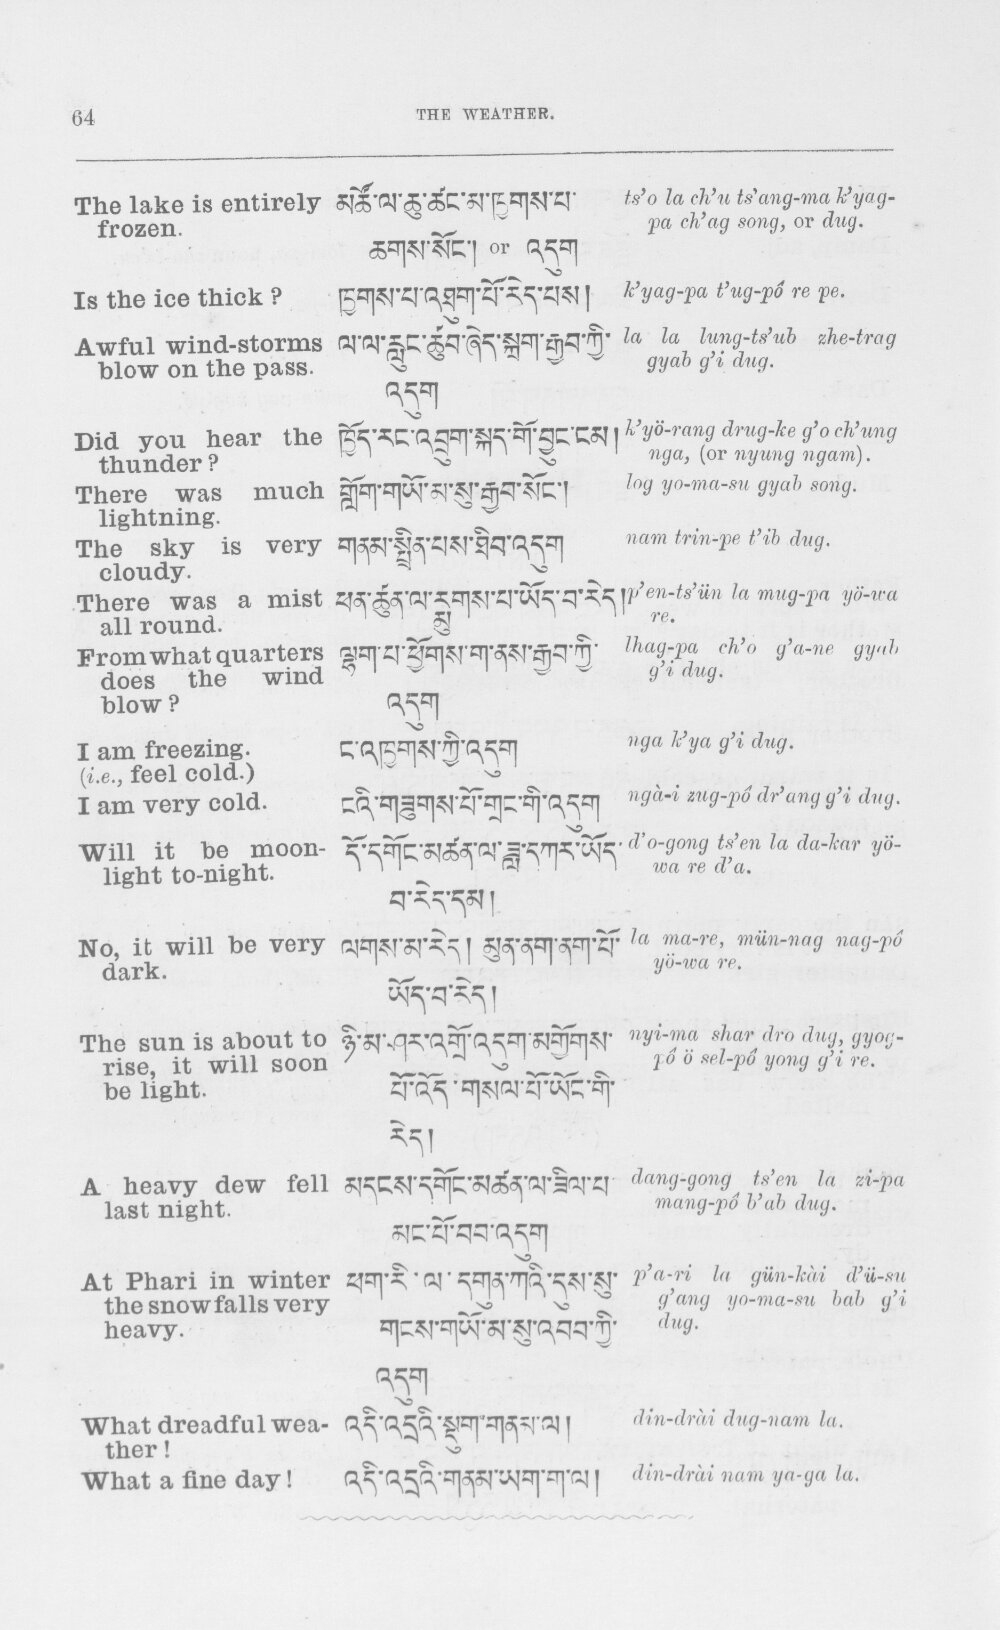 64
THE WEATHER.
The lake is entirely མཚོ་ལ་ཆུ་ཚང་མ་ཁྱགས་པ་ ts’o la ch’u ts’ang-ma k’yag-
frozen. ཆགས་སོང་། or འདུག pa ch’ag song, or dug.
Is the ice thick ? ཁྱགས་པ་འཐུག་པོ་རེད་པས། k’yag-pa t’ug-pó re pe.
Awful wind-storms ལ་ལ་རླུང་ཚུབ་ཞེད་སྐྲག་རྒྱབ་ཀྱི་ la la lung-ts’ub zhe-trag
blow on the pass. འདུག gyab g’i dug.
Did you hear the ཁྱོད་རང་འབྲུག་སྐད་གོ་བྱུང་ངམ། k’yö-rang drug-ke g’o ch’ung
thunder ? nga, (or nyung ngam).
There was much གློག་གཡོ་མ་སུ་རྒྱབ་སོང་། log yo-ma-su gyab song.
lightning.
The sky is very གནམ་སྤྲིན་པས་ཐིབ་འདུག nam trin-pe t’ib dug.
cloudy.
There was a mist ཕན་ཚུན་ལ་རྨུགས་པ་ཡོད་བ་རེད། p’en-ts’ün la mug-pa yö-wa
all round. re.
From what quarters ལྷག་པ་ཕྱོགས་ག་ནས་རྒྱབ་ཀྱི་ lhag-pa ch’o g’a-ne gyab
does the wind g’i dug.
blow ? འདུག
I am freezing. ང་འཁྱགས་ཀྱི་འདུག nga k’ya g’i dug.
(i.e., feel cold.)
I am very cold. ངའི་གཟུགས་པོ་གྲང་གི་འདུག ngà-i zug-pó dr’ang g’i dug.
Will it be moon- དོ་དགོང་མཚན་ལ་ཟླ་དཀར་ཡོད་ d’o-gong ts’en la da-kar yö-
light to-night. བ་རེད་དམ། wa re d’a.
No, it will be very ལགས་མ་རེད། མུན་ནག་ནག་པོ་ la ma-re, mün-nag nag-pó
dark. ཡོད་བ་རེད། yö-wa re.
The sun is about to ཉི་མ་ཤར་འགྲོ་འདུག་མགྱོགས་ nyi-ma shar dro dug, gyog-
rise, it will soon པོ་འོད་གསལ་པོ་ཡོང་གི་ pó ö sel-pó yong g’i re.
be light. རེད།
A heavy dew fell མདངས་དགོང་མཚན་ལ་ཟིལ་པ་ dang-gong ts’en la zi-pa
last night. མང་པོ་བབ་འདུག mang-pó b’ab dug.
At Phari in winter ཕག་རི་ལ་དགུན་ཀའི་དུས་སུ་ p’a-ri la gün-kài d’ü-su
the snow falls very གངས་གཡོ་མ་སུ་འབབ་ཀྱི་ g’ang yo-ma-su bab g’i
heavy. འདུག dug.
What dreadful wea- འདི་འདྲའི་སྡུག་གནམ་ལ། din-drài dug-nam la.
ther !
What a fine day ! འདི་འདྲའི་གནམ་ཡག་ག་ལ། din-drài nam ya-ga la.